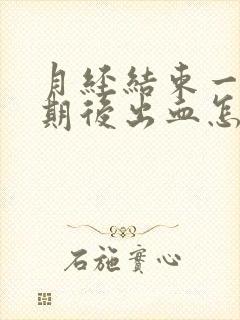 月經結束一
期後出血怎
石施實心